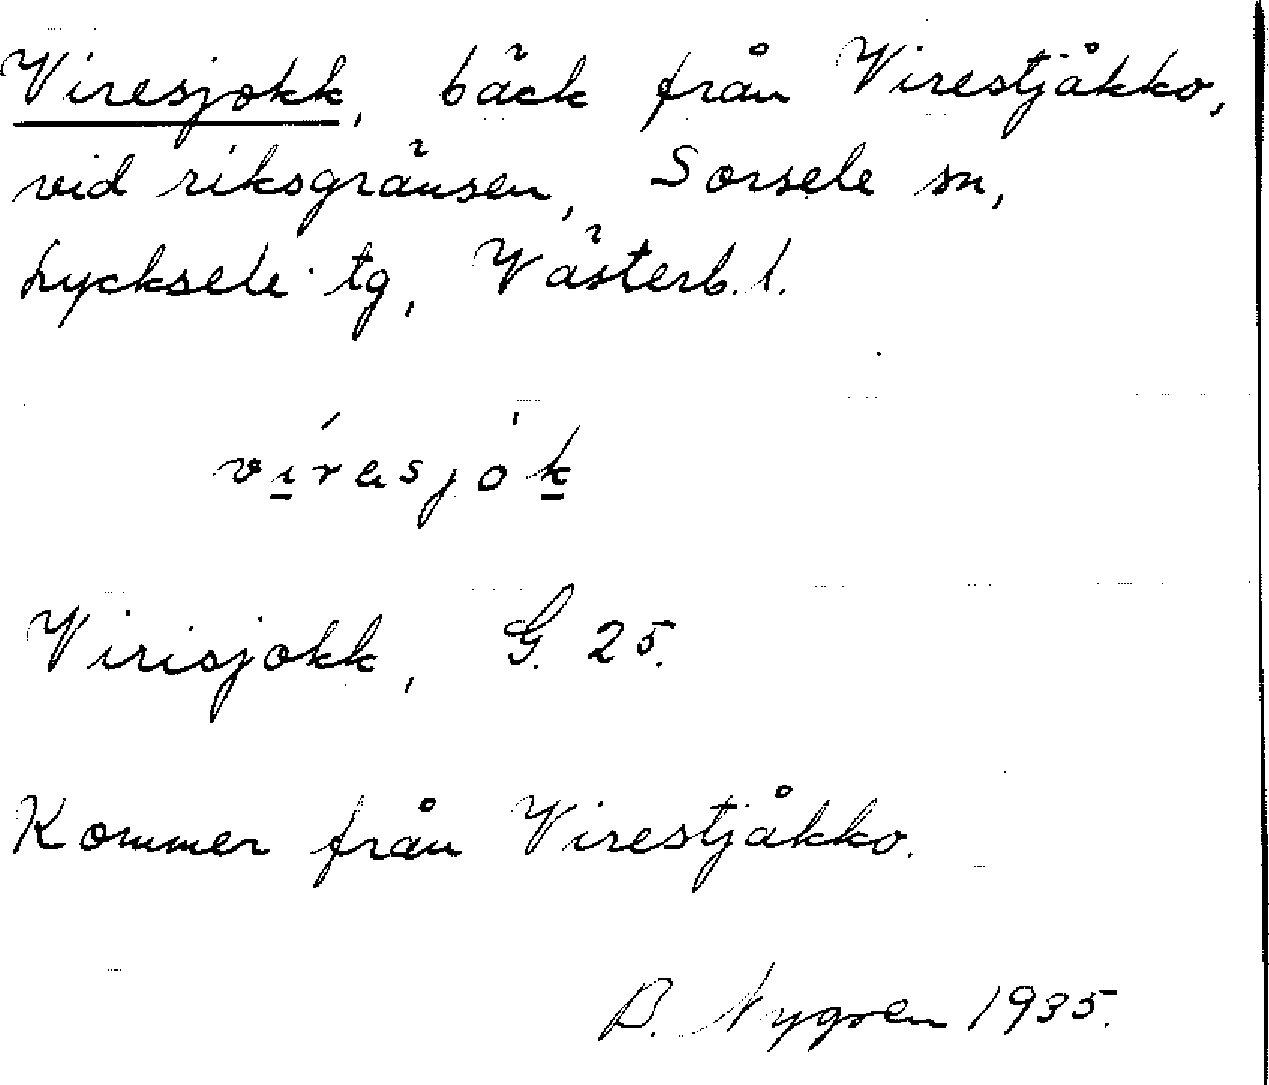 Viresjokk, bäck från Virestjåkko,
vid riksgränsen, Sorsele sn,
Lycksele tg, Västerb. l.
víresjók
Virisjokk, G. 25.
Kommer från Virestjåkko.
B. Nygren 1935.